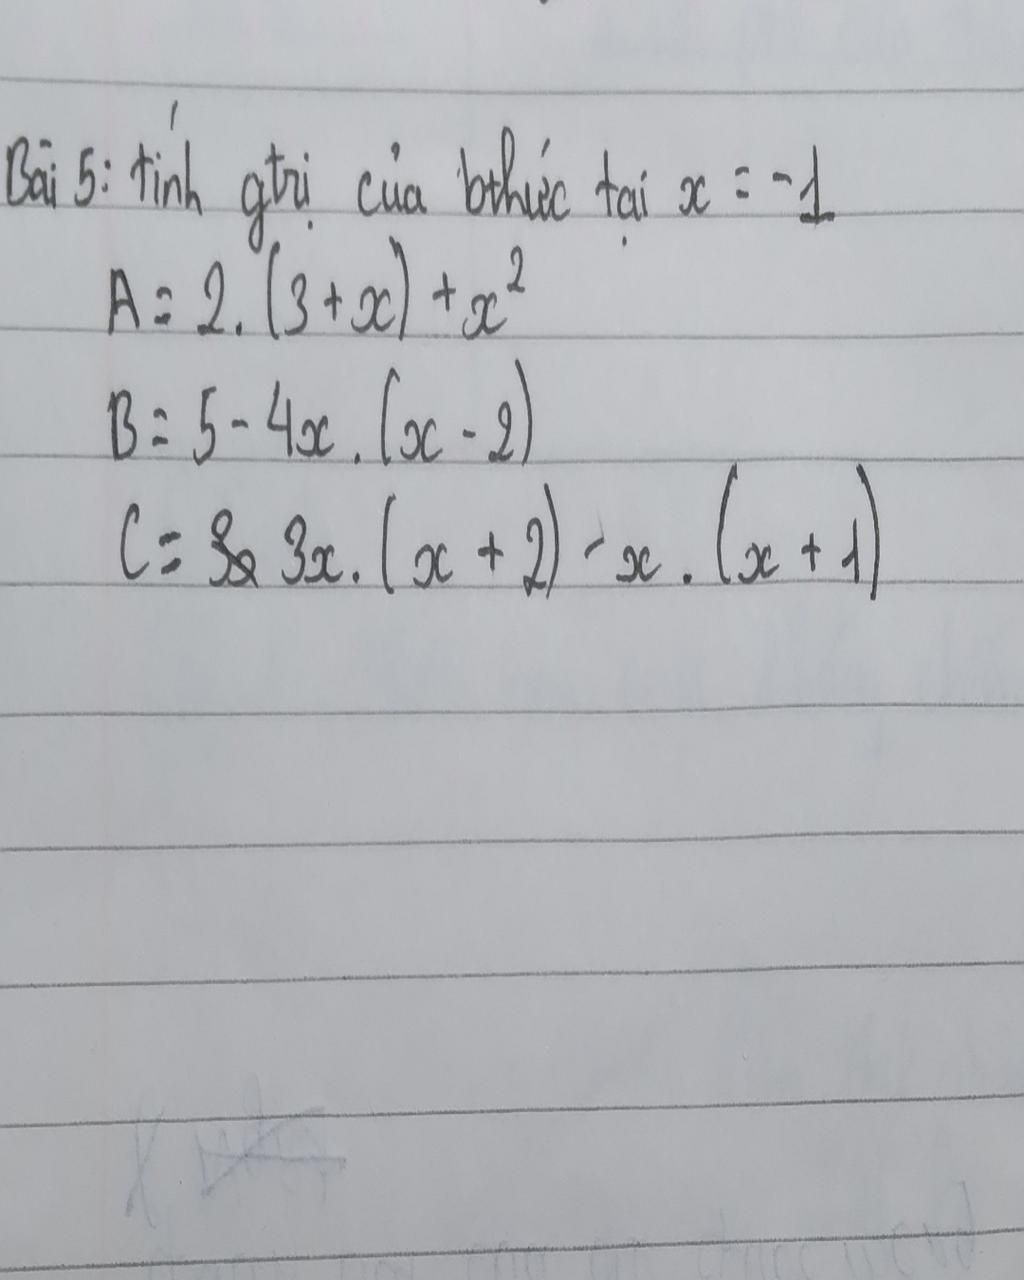 Bài 5: tính gtrị của bthức tại x = -1
A = 2. (3 + x) + x²
B = 5 - 4x . (x - 2)
C = 3x. (x + 2) - x . (x + 1)